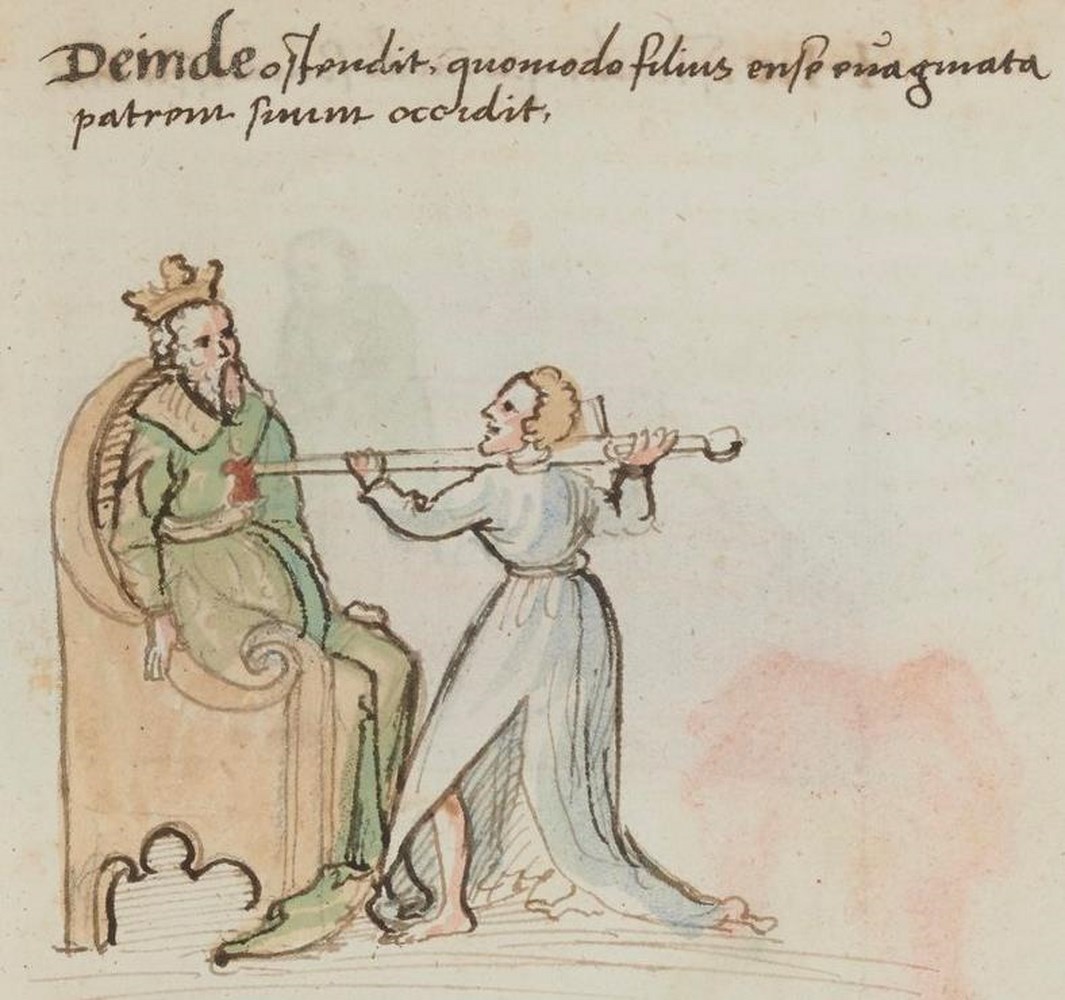 Deinde ostendit, quomodo filius ense euaginata
patrem suum occidit,